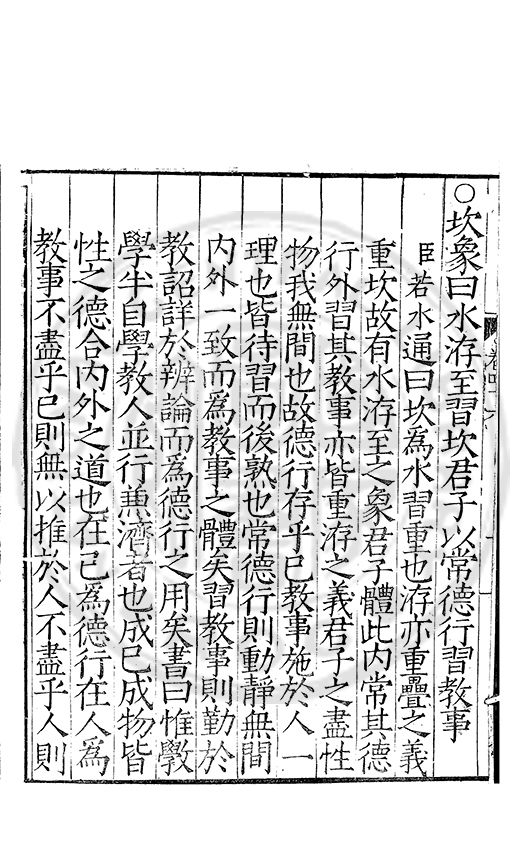 ○坎象曰水洊至習坎君子以常德行習教事
臣若水通曰坎為水習重也洊亦重疊之義
重坎故有水洊至之象君子體此内常其德
行外習其教事亦皆重洊之義君子之盡性
物我無間也故德行存乎己教事施於人一
理也皆待習而後熟也常德行則動靜無間
内外一致而為教事之體矣習教事則勤於
教詔詳於辨論而為德行之用矣書曰惟斆
學半自學教人並行兼濟者也成己成物皆
性之德合内外之道也在己為德行在人為
教事不盡乎己則無以推於人不盡乎人則